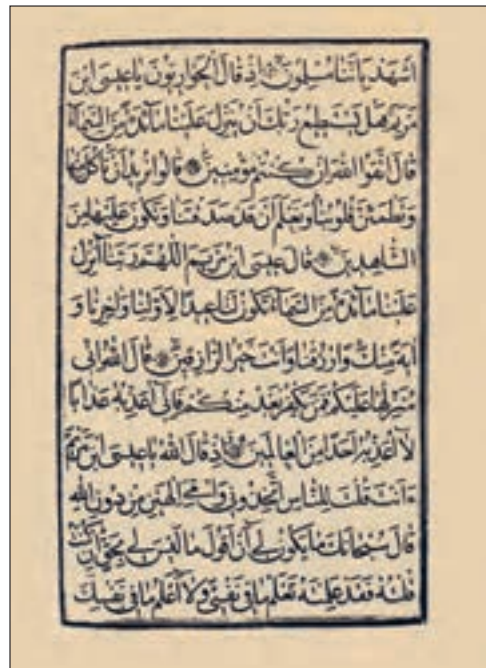 اشْهَدْ بِاَنَّنَا مُسْلِمُونَ اِذْ قَالَ الْحَوَارِيُّونَ يَا عِيسَى ابْنَ
مَرْيَمَ هَلْ يَسْتَطِيعُ رَبُّكَ اَنْ يُنَزِّلَ عَلَيْنَا مَآئِدَةً مِنَ السَّمَآءِ
قَالَ اتَّقُوا اللهَ اِنْ كُنْتُمْ مُؤْمِنِينَ قَالُوا نُرِيدُ اَنْ نَأْكُلَ مِنْهَا
وَتَطْمَئِنَّ قُلُوبُنَا وَنَعْلَمَ اَنْ قَدْ صَدَقْتَنَا وَنَكُونَ عَلَيْهَا مِنَ
الشَّاهِدِينَ قَالَ عِيسَى ابْنُ مَرْيَمَ اللّٰهُمَّ رَبَّنَا اَنْزِلْ
عَلَيْنَا مَآئِدَةً مِنَ السَّمَآءِ تَكُونُ لَنَا عِيدًا لِاَوَّلِنَا وَاٰخِرِنَا وَ
اٰيَةً مِنْكَ وَارْزُقْنَا وَاَنْتَ خَيْرُ الرَّازِقِينَ قَالَ اللهُ اِنِّي
مُنَزِّلُهَا عَلَيْكُمْ فَمَنْ يَكْفُرْ بَعْدُ مِنْكُمْ فَاِنِّي اُعَذِّبُهُ عَذَابًا
لَآ اُعَذِّبُهُ اَحَدًا مِنَ الْعَالَمِينَ وَاِذْ قَالَ اللهُ يَا عِيسَى ابْنَ مَرْيَمَ
ءَاَنْتَ قُلْتَ لِلنَّاسِ اتَّخِذُونِي وَاُمِّيَ اِلٰهَيْنِ مِنْ دُونِ اللهِ
قَالَ سُبْحَانَكَ مَا يَكُونُ لِي اَنْ اَقُولَ مَا لَيْسَ لِي بِحَقٍّ اِنْ كُنْتُ
قُلْتُهُ فَقَدْ عَلِمْتَهُ تَعْلَمُ مَا فِي نَفْسِي وَلَآ اَعْلَمُ مَا فِي نَفْسِكَ